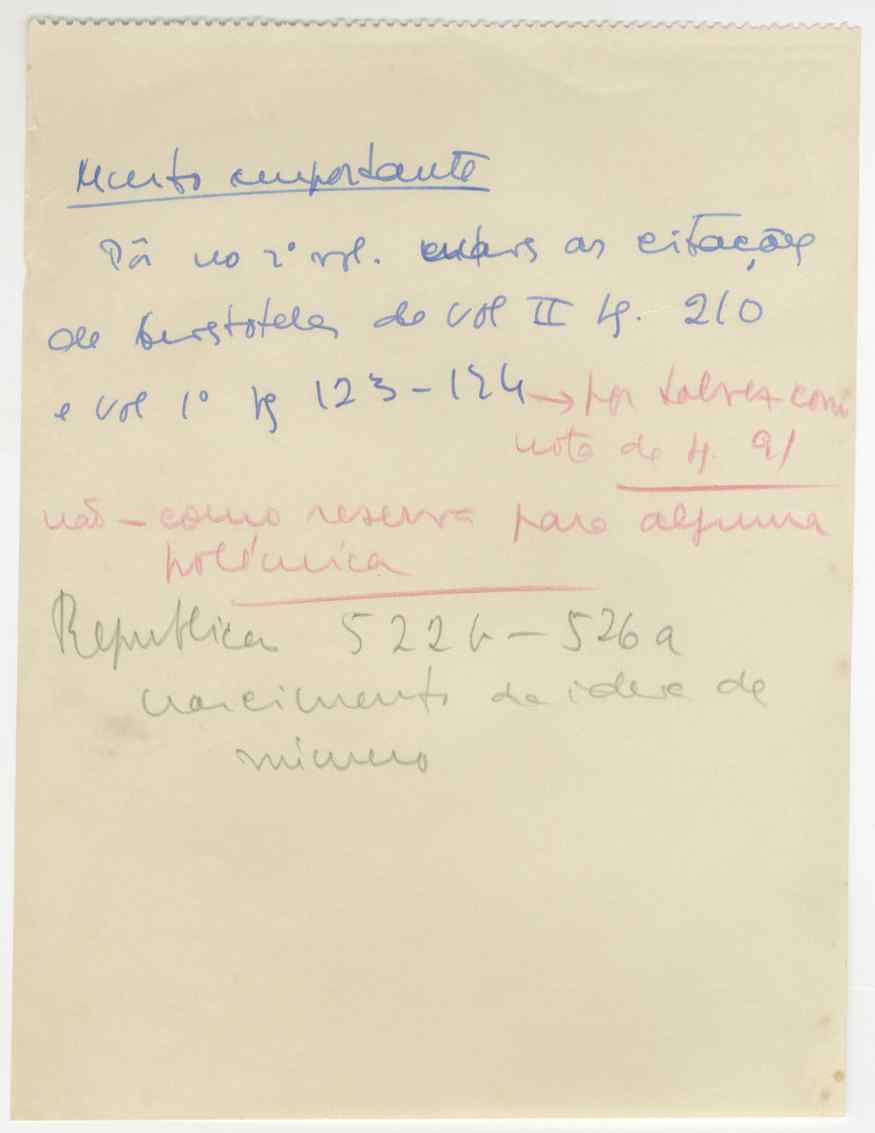 Muito importante
Pôr no 2º vol. as citações
de Aristoteles do vol II pg. 210
e vol 1º pg 123-124 → por talvez como
nota da pg. 91
não - como reserva para alguma
polémica
Republica 522b - 526a
nascimento da ideia de
número